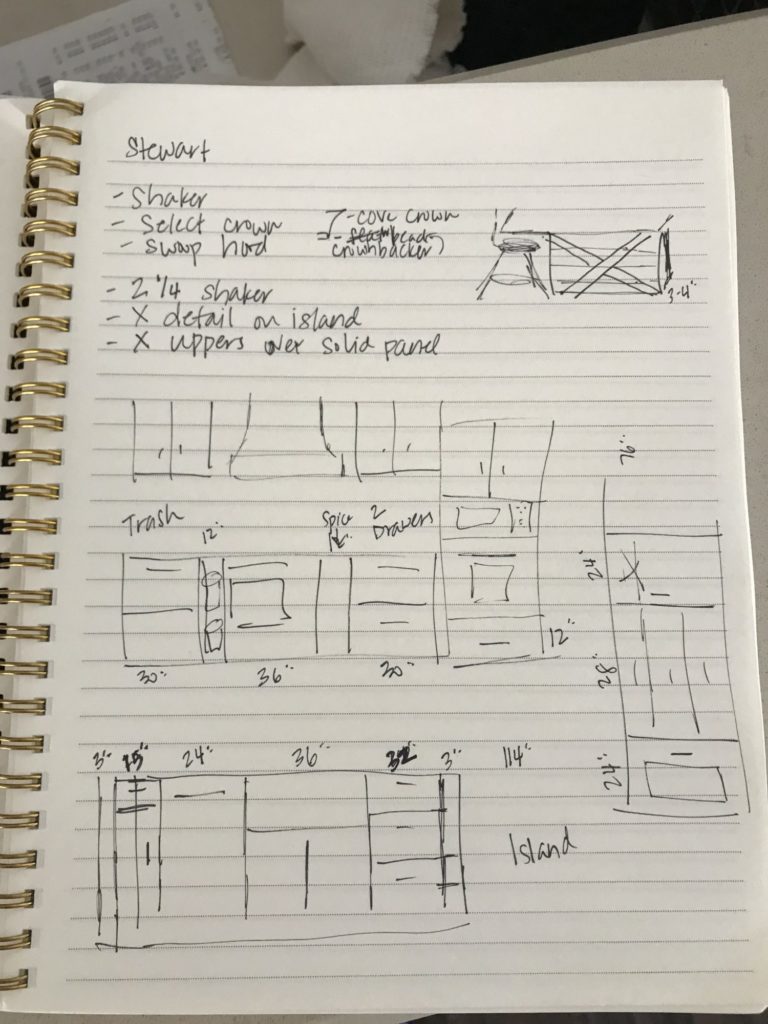 Stewart
- Shaker
- Select crown
- swap hood
- cove crown
- bead
crownbacker
- 2 1/4 shaker
- X detail on island
- X uppers over solid panel
3-4"
Trash
12"
Spice
2
Drawers
30"
36"
30"
12"
24"
28"
24"
3"
15"
24"
36"
3"
114"
Island